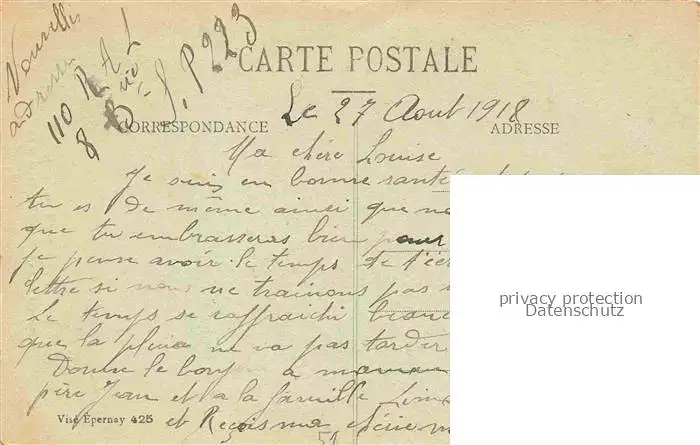 Nouvelle
adresse
110 R A L
8 Bie
S. P 223
CARTE POSTALE
Le 27 Aout 1918
CORRESPONDANCE
ADRESSE
Ma chère Louise
Je suis en bonne santé
tu es de même ainsi que
que tu embrasseras bien pour
je pense avoir le temps de
lettre si nous ne trainons pas
Le temps se raffraichi
que la pluie ne va pas tarder
Donne le bonjour a maman
père Jean et a la famille
et Reçois ma chérie
Visé Epernay 425
privacy protection
Datenschutz